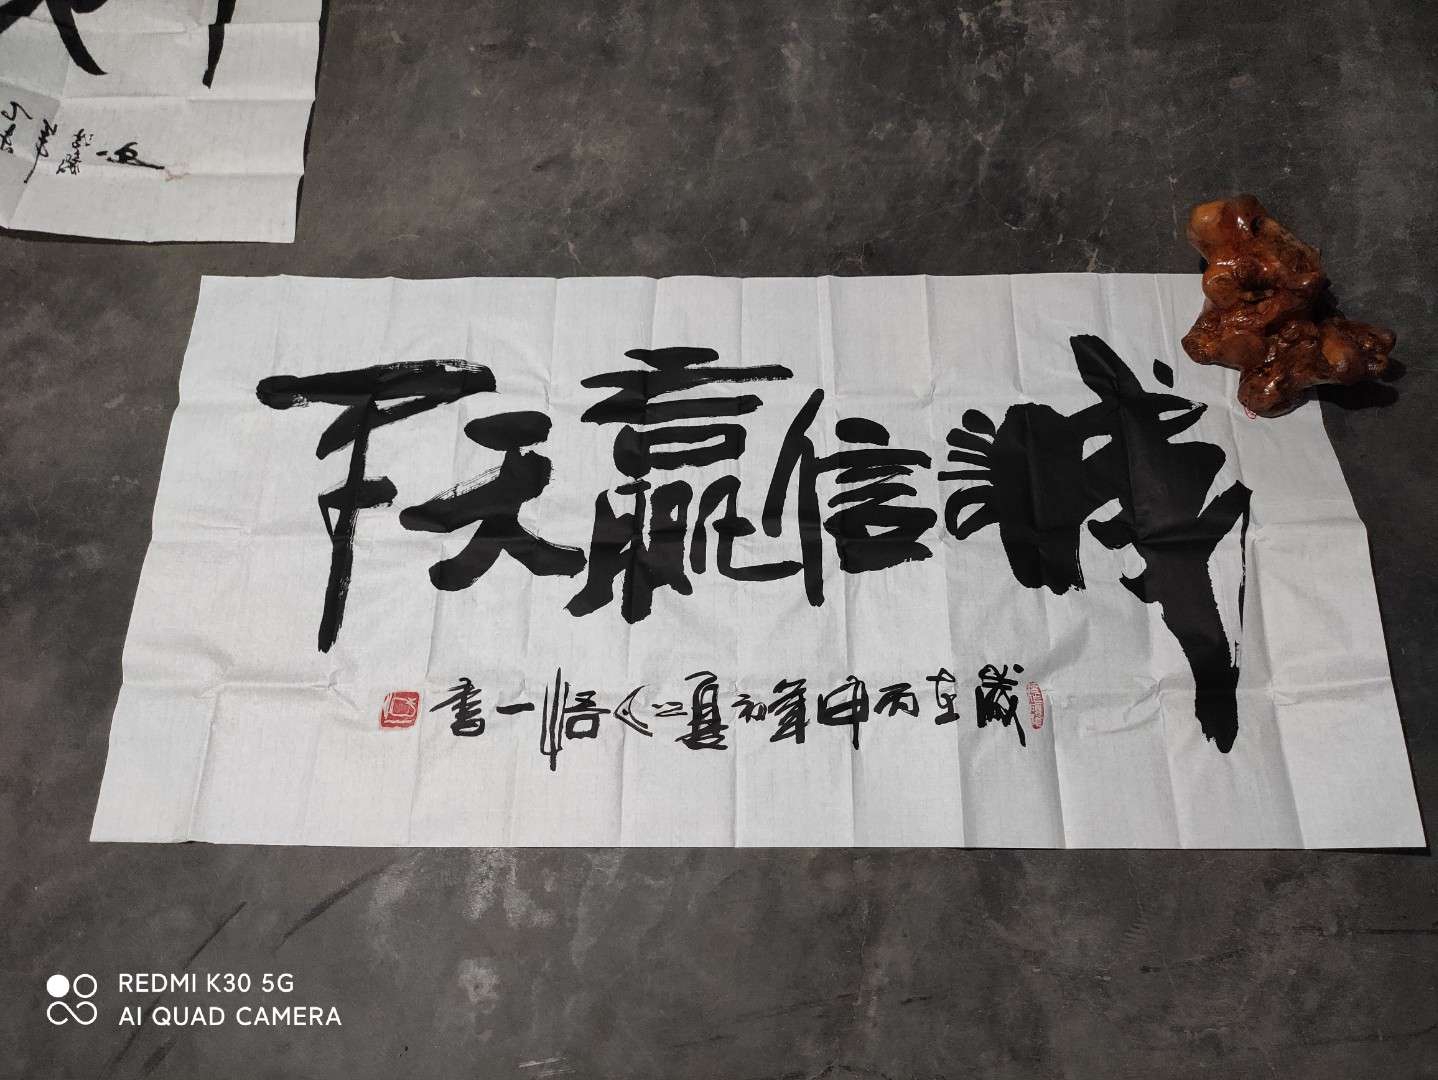 誠信贏天下
歲在丙申年初夏之 悟一書
REDMI K30 5G
AI QUAD CAMERA